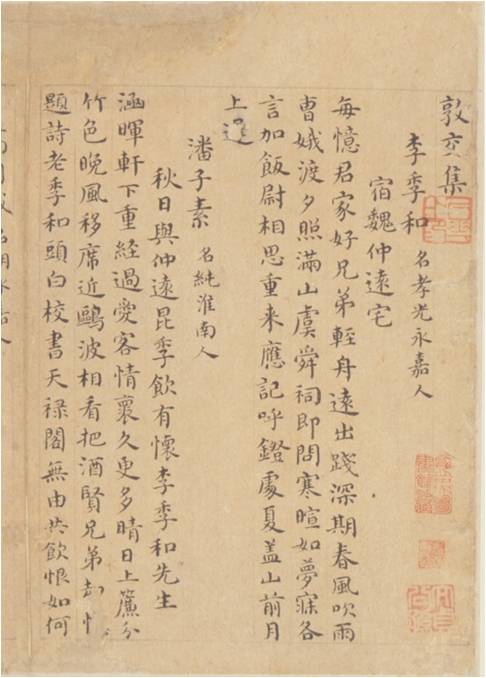 敦交集
李季和 名孝光永嘉人
宿魏仲遠宅
每憶君家好兄弟輕舟遠出踐深期春風吹雨
曹娥渡夕照滿山虞舜祠即問寒暄如夢寐各
言加飯尉相思重来應記呼鐙處夏盖山前月
上遲
潘子素 名純淮南人
秋日與仲遠昆季飲有懷李季和先生
涵暉軒下重經過愛客情裏久更多晴日上簾分
竹色晚風移席近鷗波相看把酒賢兄弟却忄
題詩老季和頭白校書天禄閣無由共飲恨如何